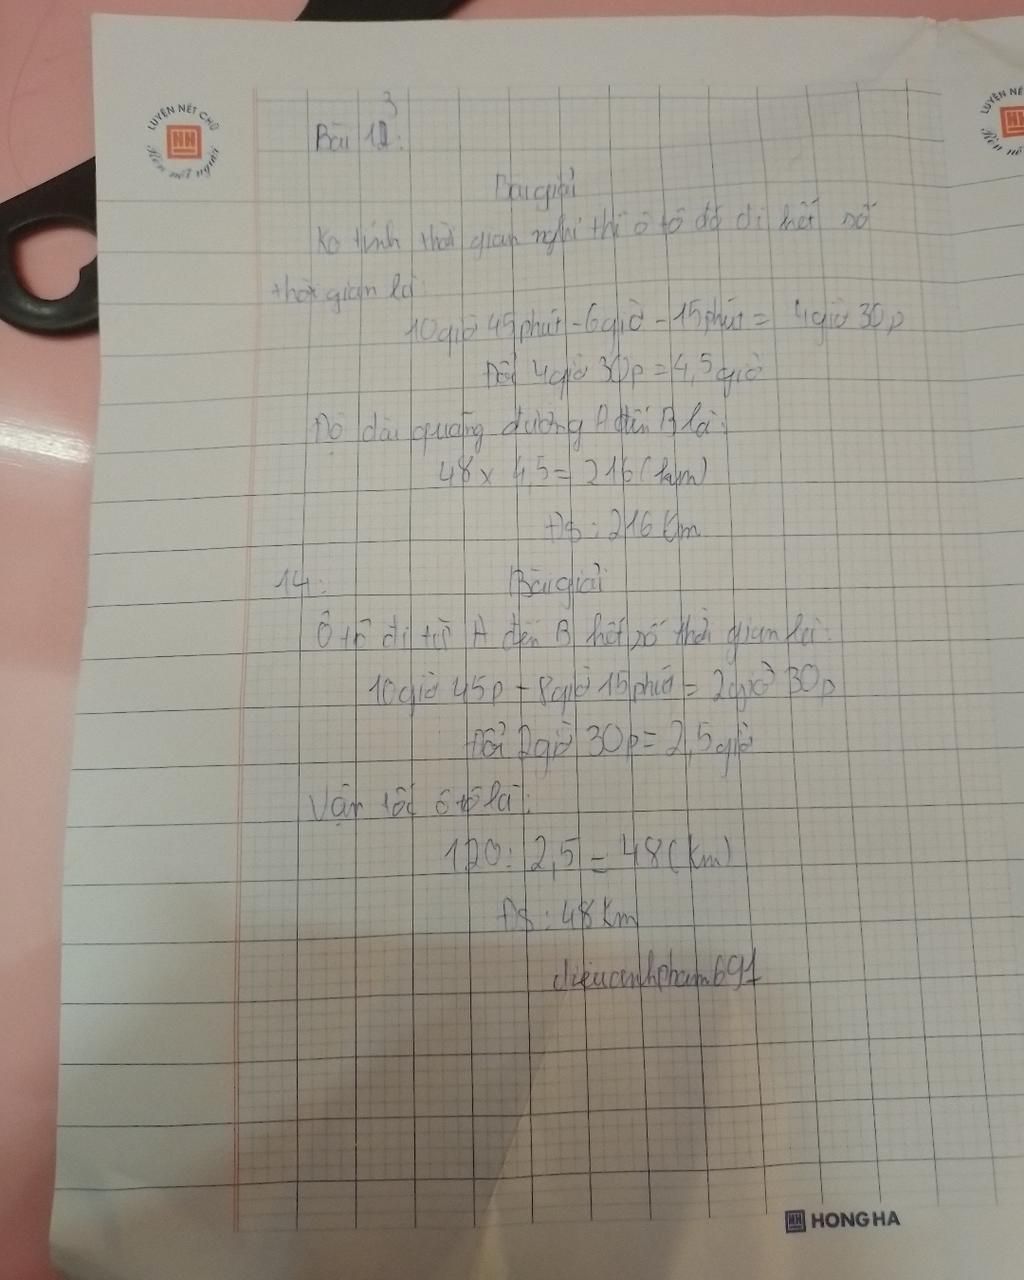 LUYỆN NÉT CHỮ
HH
Rèn nết người
LUYỆN NÉ
Rèn nế
3
Bài 12:
Bài giải
Ko tính thời gian nghỉ thì ô tô đó đi hết số
thời gian là:
10giờ 45phút - 6giờ - 15phút = 4giờ 30p
Đổi 4giờ 30p = 4,5giờ
Độ dài quãng đường A đến B là:
48 x 4,5 = 216 (km)
Đs: 216 Km
14:
Bài giải
Ô tô đi từ A đến B hết số thời gian là:
10giờ 45p - 8giờ 15phút = 2giờ 30p
Đổi 2giờ 30p = 2,5giờ
Vận tốc ô tô là:
120 : 2,5 = 48 (Km)
Đs: 48 Km
dieuanhpham691
HH HONG HA